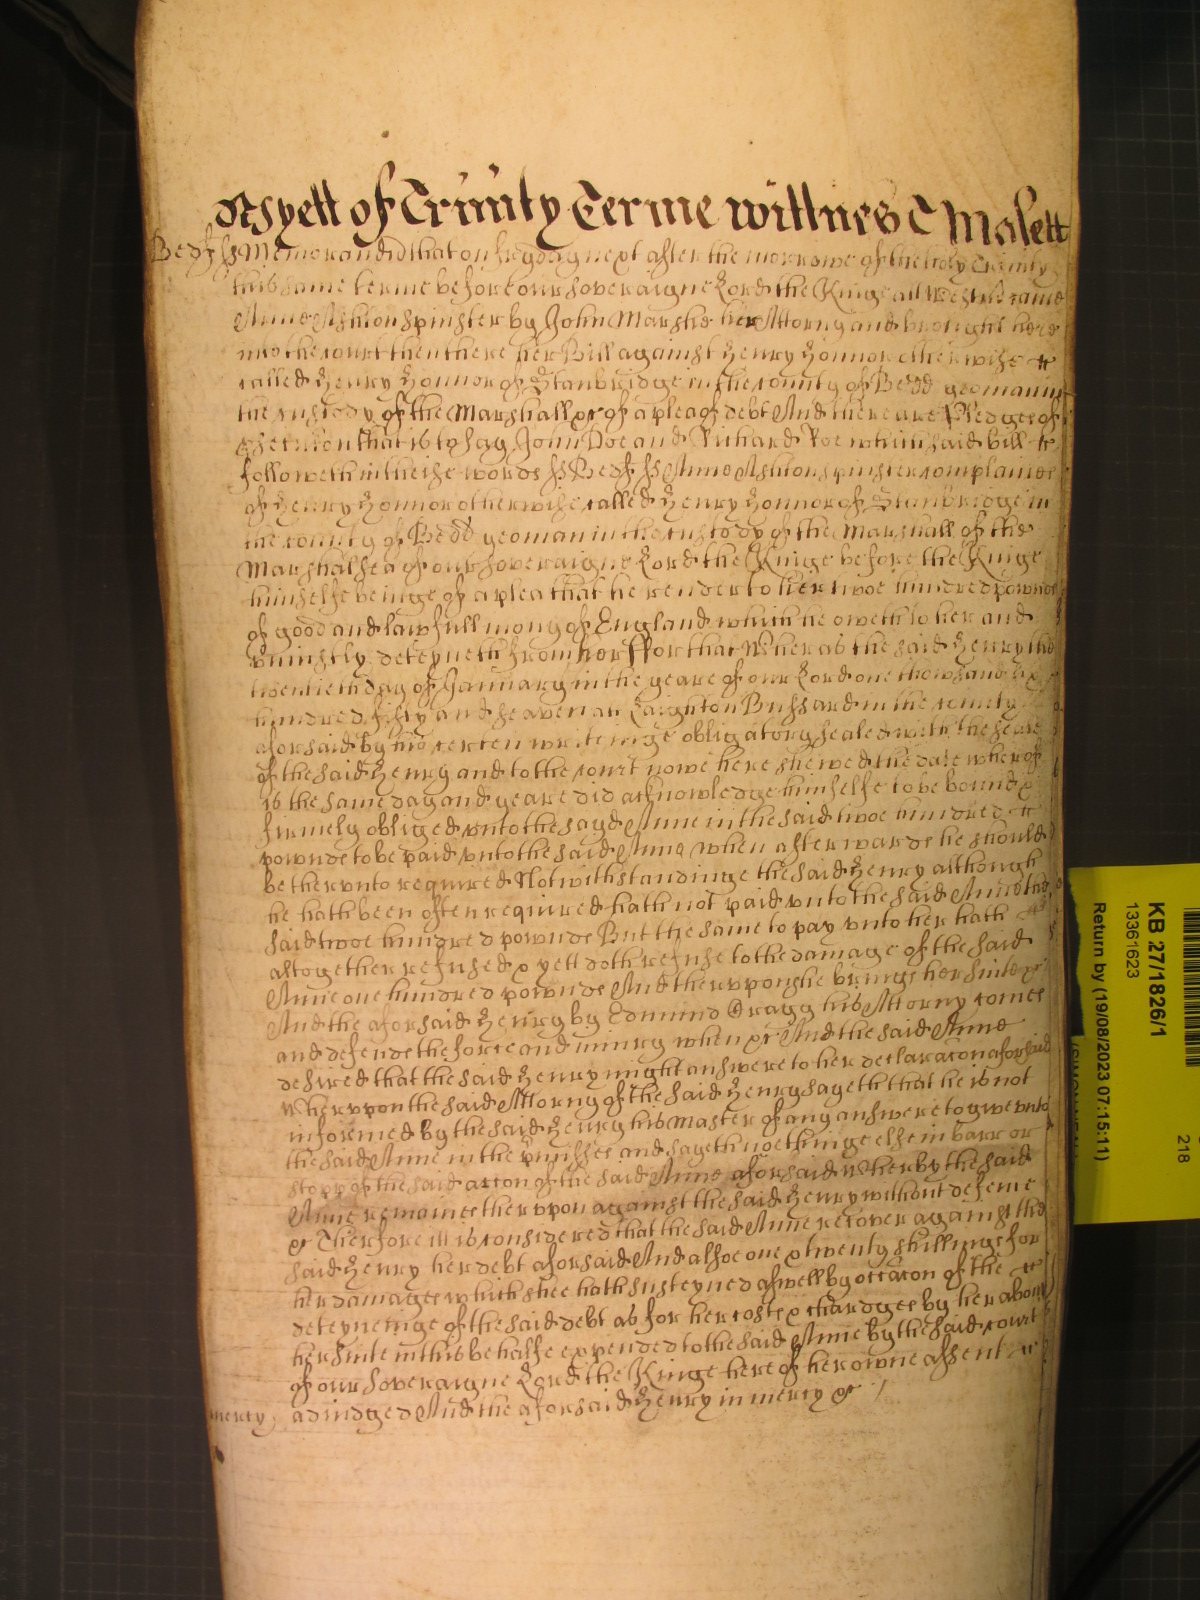 As yett of Trinity Terme wittnes T Malett
Bedf ss Memorandid that on fryday next after the morrowe of the holy Trinity
this same terme before our soveraigne Lord the Kinge att Westmr came
Anne Ashton spinster by John Marshe her Attorny and brought here
into the court then there her Bill against Henry Honnor otherwise
called Henry Honnor of Stanbridge in the county of Bedd yeoman in
the custody of the Marshall &c of a plea of debt And there are Pledges of
that is to say John Doe and Richard Roe which said bill
followeth in theise words ss Bedf ss Anne Ashton spinster complaines
of Henry Honnor otherwise called Henry Honnor of Stanbridge in
the county of Bedd yeoman in the custody of the Marshall of the
Marshalsea of our soveraigne Lord the Kinge before the Kinge
himselfe beinge of a plea that he render to her twoe hundred pownds
of good and lawfull mony of England which he oweth to her and
uniustly deteyneth from her ffor that Whereas the said Henry the
twentieth day of January in the yeare of our Lord one thowsand six
hundred fifty and seaven att Laighton Bussard in the county
aforsaid by his certen writeinge obligatory sealed with the seale
of the said Henry and to the court nowe here shewed the date wherof
is the same day and yeare did acknowledge himselfe to be bound &
firmely obliged unto the sayd Anne in the said twoe hundred
pownds to be paid unto the said Anne when afterwards he should
be therunto required Notwithstandinge the said Henry although
he hath been often required hath not paid unto the said Anne the
said twoe hundred pownds But the same to pay unto her hath
altogether refused & yett doth refuse to the damage of the said
Anne one hundred pownds And therupon she brings her suite &c
And the aforsaid Henry by Edmund Bragg his Attorny comes
and defends the force and iniury when &c And the said Anne
desired that the said Henry might answere to her declaracon aforsaid
Wherupon the said Attorny of the said Henry sayeth that he is not
informed by the said Henry his master of any answere to give unto
the said Anne in the pmisses and sayeth noethinge else in barr or
stopp of the said accon of the said Anne aforsaid Wherby the said
Anne remaines therupon against the said Henry without defence
&c Therfore itt is considered that the said Anne recover against the
said Henry her debt aforsaid And alsoe one & twenty shillings for
her damages which shee hath susteyned aswell by occacon of the
deteyneinge of the said debt as for her costs & chardges by her about
her suite in this behalfe expended to the said Anne by the said court
of our soveraigne Lord the Kinge here of her owne assent
mercy adiudged And the aforsaid Henry in mercy &c
KB 27/1826/1
13361623
Return by (19/08/2023 07:15:11)
218